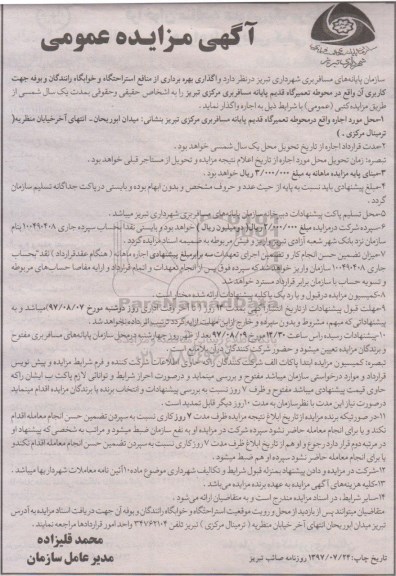 آگهی مزایده عمومی
سازمان پایانه‌های مسافربری شهرداری تبریز درنظر دارد واگذاری بهره برداری از منافع استراحتگاه و خوابگاه رانندگان و بوفه جهت
کاربری آن واقع در محوطه تعمیرگاه قدیم پایانه مسافربری مرکزی تبریز را به اشخاص حقیقی وحقوقی بمدت یک سال شمسی از
طریق مزایده کتبی (عمومی) با شرایط ذیل به اجاره واگذار نماید.
۱-محل مورد اجاره واقع درمحوطه تعمیرگاه قدیم پایانه مسافربری مرکزی تبریز بنشانی: میدان ابوریحان- انتهای آخرخیابان منظریه(
ترمینال مرکزی.)
۲-مدت قرارداد اجاره از تاریخ تحویل محل یک سال شمسی خواهد بود.
تبصره: زمان تحویل محل مورد اجاره از تاریخ اعلام نتیجه مزایده و تحویل از مستاجر قبلی خواهد بود.
۳-مبنای پایه مزایده ماهانه به مبلغ ۳/۰۰۰/۰۰۰ ریال خواهد بود.
۴-مبلغ پیشنهادی باید نسبت به پایه از حیث عدد و حروف مشخص و بدون ابهام بوده و بایستی درپاکت جداگانه تسلیم سازمان
گردد.
۵-محل تسلیم پاکت پیشنهادات دبیرخانه سازمان پایانه‌های مسافربری شهرداری تبریز میباشد.
۶-سپرده شرکت درمزایده ریال( دومیلیون ریال) خواهد بود و بایستی نقدا بحساب سپرده جاری ۱۰۰۴۹۰۴۰۸ بنام
سازمان نزد بانک شهر شعبه آزادی تبریز واریز و فیش مربوطه به ضمیمه اسناد مزایده گردد.
۷-میزان تضمین حسن انجام کار و تضمین اجرای تعهدات سه برابر مبلغ پیشنهادی اجاره ماهانه (هنگام عقد قرارداد) نقد"بحساب
جاری ۱۰۰۴۹۰۴۰۸ سازمان واریز خواهد شد که سپرده فوق پس از انجام تعهدات و اتمام قرارداد و ارایه مفاصا حساب‌های مربوطه
و تسویه حساب با سازمان برابر قرارداد مسترد خواهد شد.
۸-کمیسیون مزایده در قبول و یا رد یک یا کلیه پیشنهادات ارائه شده مختار است.
۹-مهلت قبول پیشنهادات از تاریخ انتشار آگهی روز تا آخر وقت اداری روز دوشنبه مورخ ۹۷/۰۸/۰۷ میباشد و به
پیشنهاداتی که مبهم، مشروط و بدون سپرده و خارج از این مهلت ارایه گردد ترتیب اثر داده نخواهد شد.
۱۰-پیشنهادات رسیده راس ساعت ۱۲/۳۰ ۹۷/۰۸/۰۹ بعد از ظهر روز چهارشنبه در محل سازمان پایانه‌های مسافربری مفتوح
و برندگان مزایده تعیین میشود و حضور شرکت کنندگان در آن
تبصره: کمیسیون مزایده ابتدا پاکات الف شرکت کنندگان شرکت کننده و فرم شرایط مزایده و پیش نویس
قرارداد و موارد درخواستی سازمان میباشد مفتوح و بررسی مینماید و درصورت احراز شرایط و توانائی لازم پاکت ب ایشان راکه
حاوی قیمت پیشنهادی میباشد مفتوح و ظرف ۷ روز نسبت به بررسی پیشنهادات و انتخاب برنده یا برندگان مزایده اقدام مینماید
درصورت نیاز این مدت با نظر سازمان به مدت ۱۰ روز دیگر قابل تمدید است.
۱۱-در صورتیکه برنده مزایده از تاریخ ابلاغ نتیجه مزایده ظرف مدت ۷ روز کاری نسبت به سپردن تضمین حسن انجام معامله اقدام
نکند و یا برای انجام معامله حاضر نشود سپرده شرکت در مزایده او به نفع سازمان ضبط میشود و مراتب به شخصی که پیشنهاد او
در مرتبه دوم قرار دارد رجوع و او هم از تاریخ ابلاغ ظرف مدت ۷ روز کاری نسبت به سپردن تضمین حسن انجام معامله اقدام نکند و
یا برای انجام معامله حاضر نشود سپرده او هم ضبط میشود.
۱۲-شرکت در مزایده و دادن پیشنهاد بمنزله قبول شرایط و تکالیف شهرداری موضوع ماده ۱۰ آئین نامه معاملات شهرداریها میباشد.
۱۳-کلیه هزینه‌های آگهی مزایده به عهده برنده مزایده می‌باشد.
۱۴-سایر شرایط، در اسناد مزایده مندرج است و به متقاضیان ارائه می‌شود.
متقاضیان میتوانند پس از بازدید از محل و رویت موقعیت استراحتگاه و خوابگاه رانندگان و بوفه آن جهت دریافت اسناد مزایده به آدرس
تبریز میدان ابوریحان انتهای آخر خیابان منظریه ( ترمینال مرکزی ) تبریز تلفن ۳۴۷۶۲۱۰۴ واحد امور قراردادها مراجعه نمایند.
محمد قلیزاده
مدیرعامل سازمان
تاریخ چاپ: ۱۳۹۷/۰۷/۲۴ روزنامه صائب تبریز